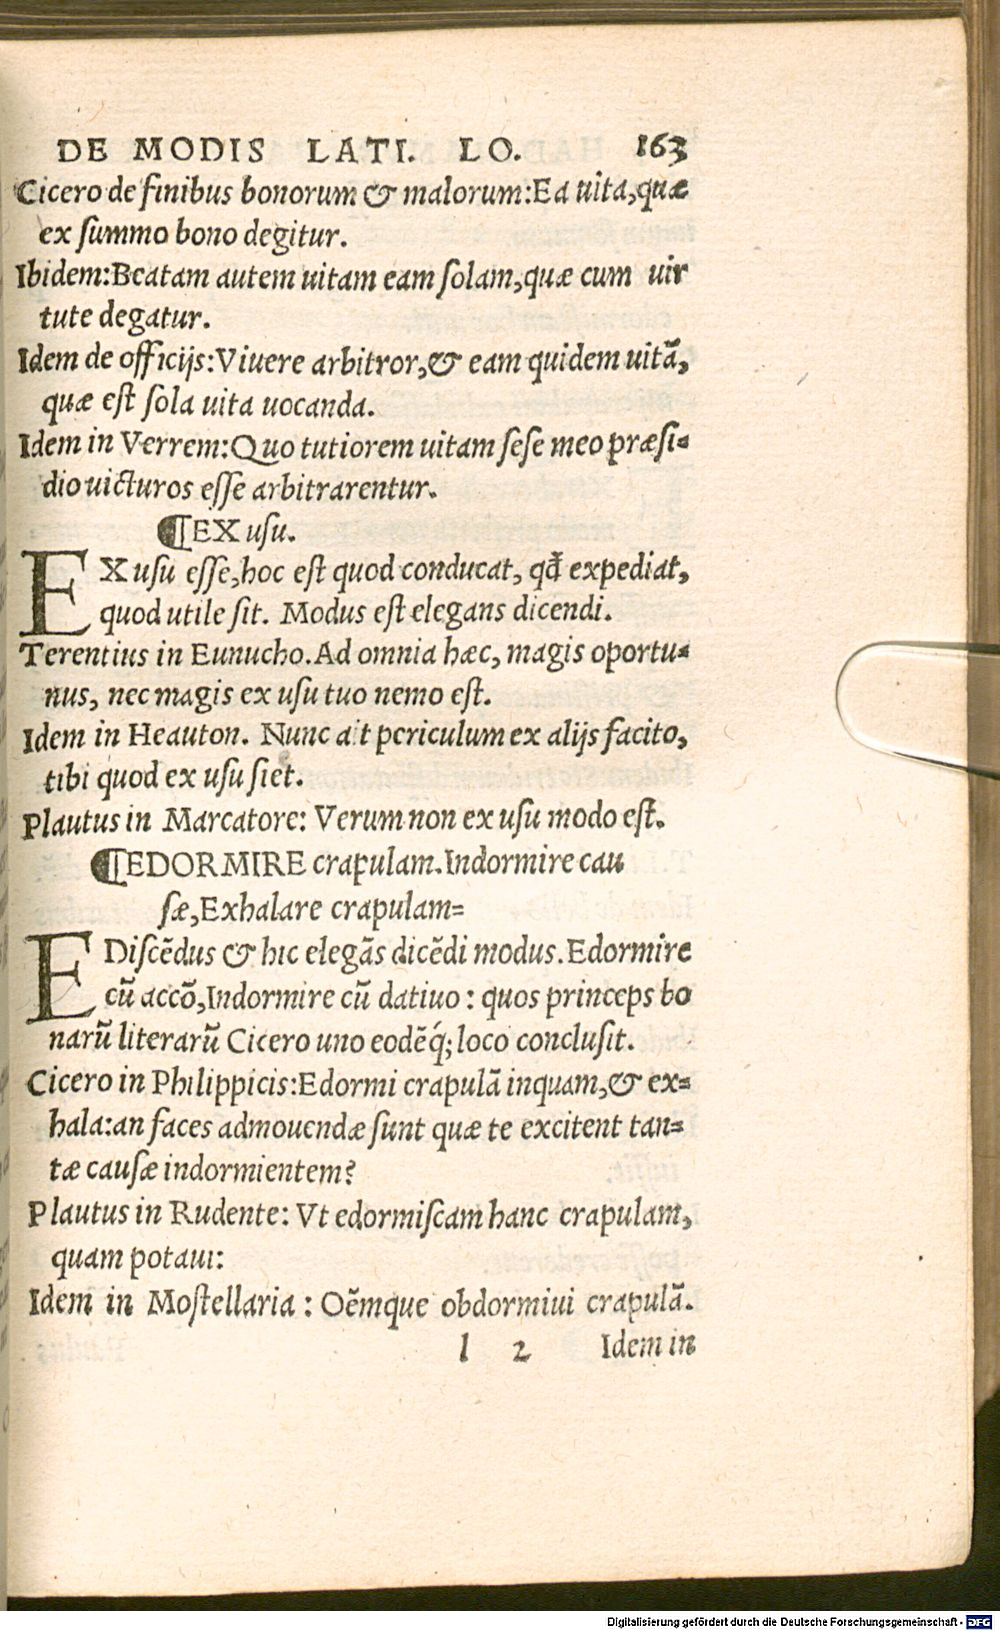 DE MODIS LATI. LO. 163
Cicero de finibus bonorum & malorum:Ea uita,quæ
ex ſummo bono degitur.
Ibidem:Beatam autem uitam eam ſolam,quæ cum uir
tute degatur.
Idem de officijs:Viuere arbitror,& eam quidem uitā,
quæ eſt ſola uita uocanda.
Idem in Verrem:Quo tutiorem uitam ſeſe meo præſi=
dio uicturos eſſe arbitrarentur.
¶EX uſu.
EX uſu eſſe,hoc eſt quod conducat, qđ expediat,
quod utile ſit. Modus eſt elegans dicendi.
Terentius in Eunucho.Ad omnia hæc, magis oportu=
nus, nec magis ex uſu tuo nemo eſt.
Idem in Heauton. Nunc ait periculum ex alijs facito,
tibi quod ex uſu ſiet.
Plautus in Marcatore: Verum non ex uſu modo eſt.
¶EDORMIRE crapulam.Indormire cau
ſæ,Exhalare crapulam=
EDiſcēdus & hic elegās dicēdi modus.Edormire
cū accō,Indormire cū datiuo: quos princeps bo
narū literarū Cicero uno eodēq́; loco concluſit.
Cicero in Philippicis:Edormi crapulā inquam,& ex=
hala:an faces admouendæ ſunt quæ te excitent tan=
tæ cauſæ indormientem?
Plautus in Rudente: Vt edormiſcam hanc crapulam,
quam potaui:
Idem in Moſtellaria: Oēmque obdormiui crapulā.
l 2 Idem in
Digitalisierung gefördert durch die Deutsche Forschungsgemeinschaft - DFG